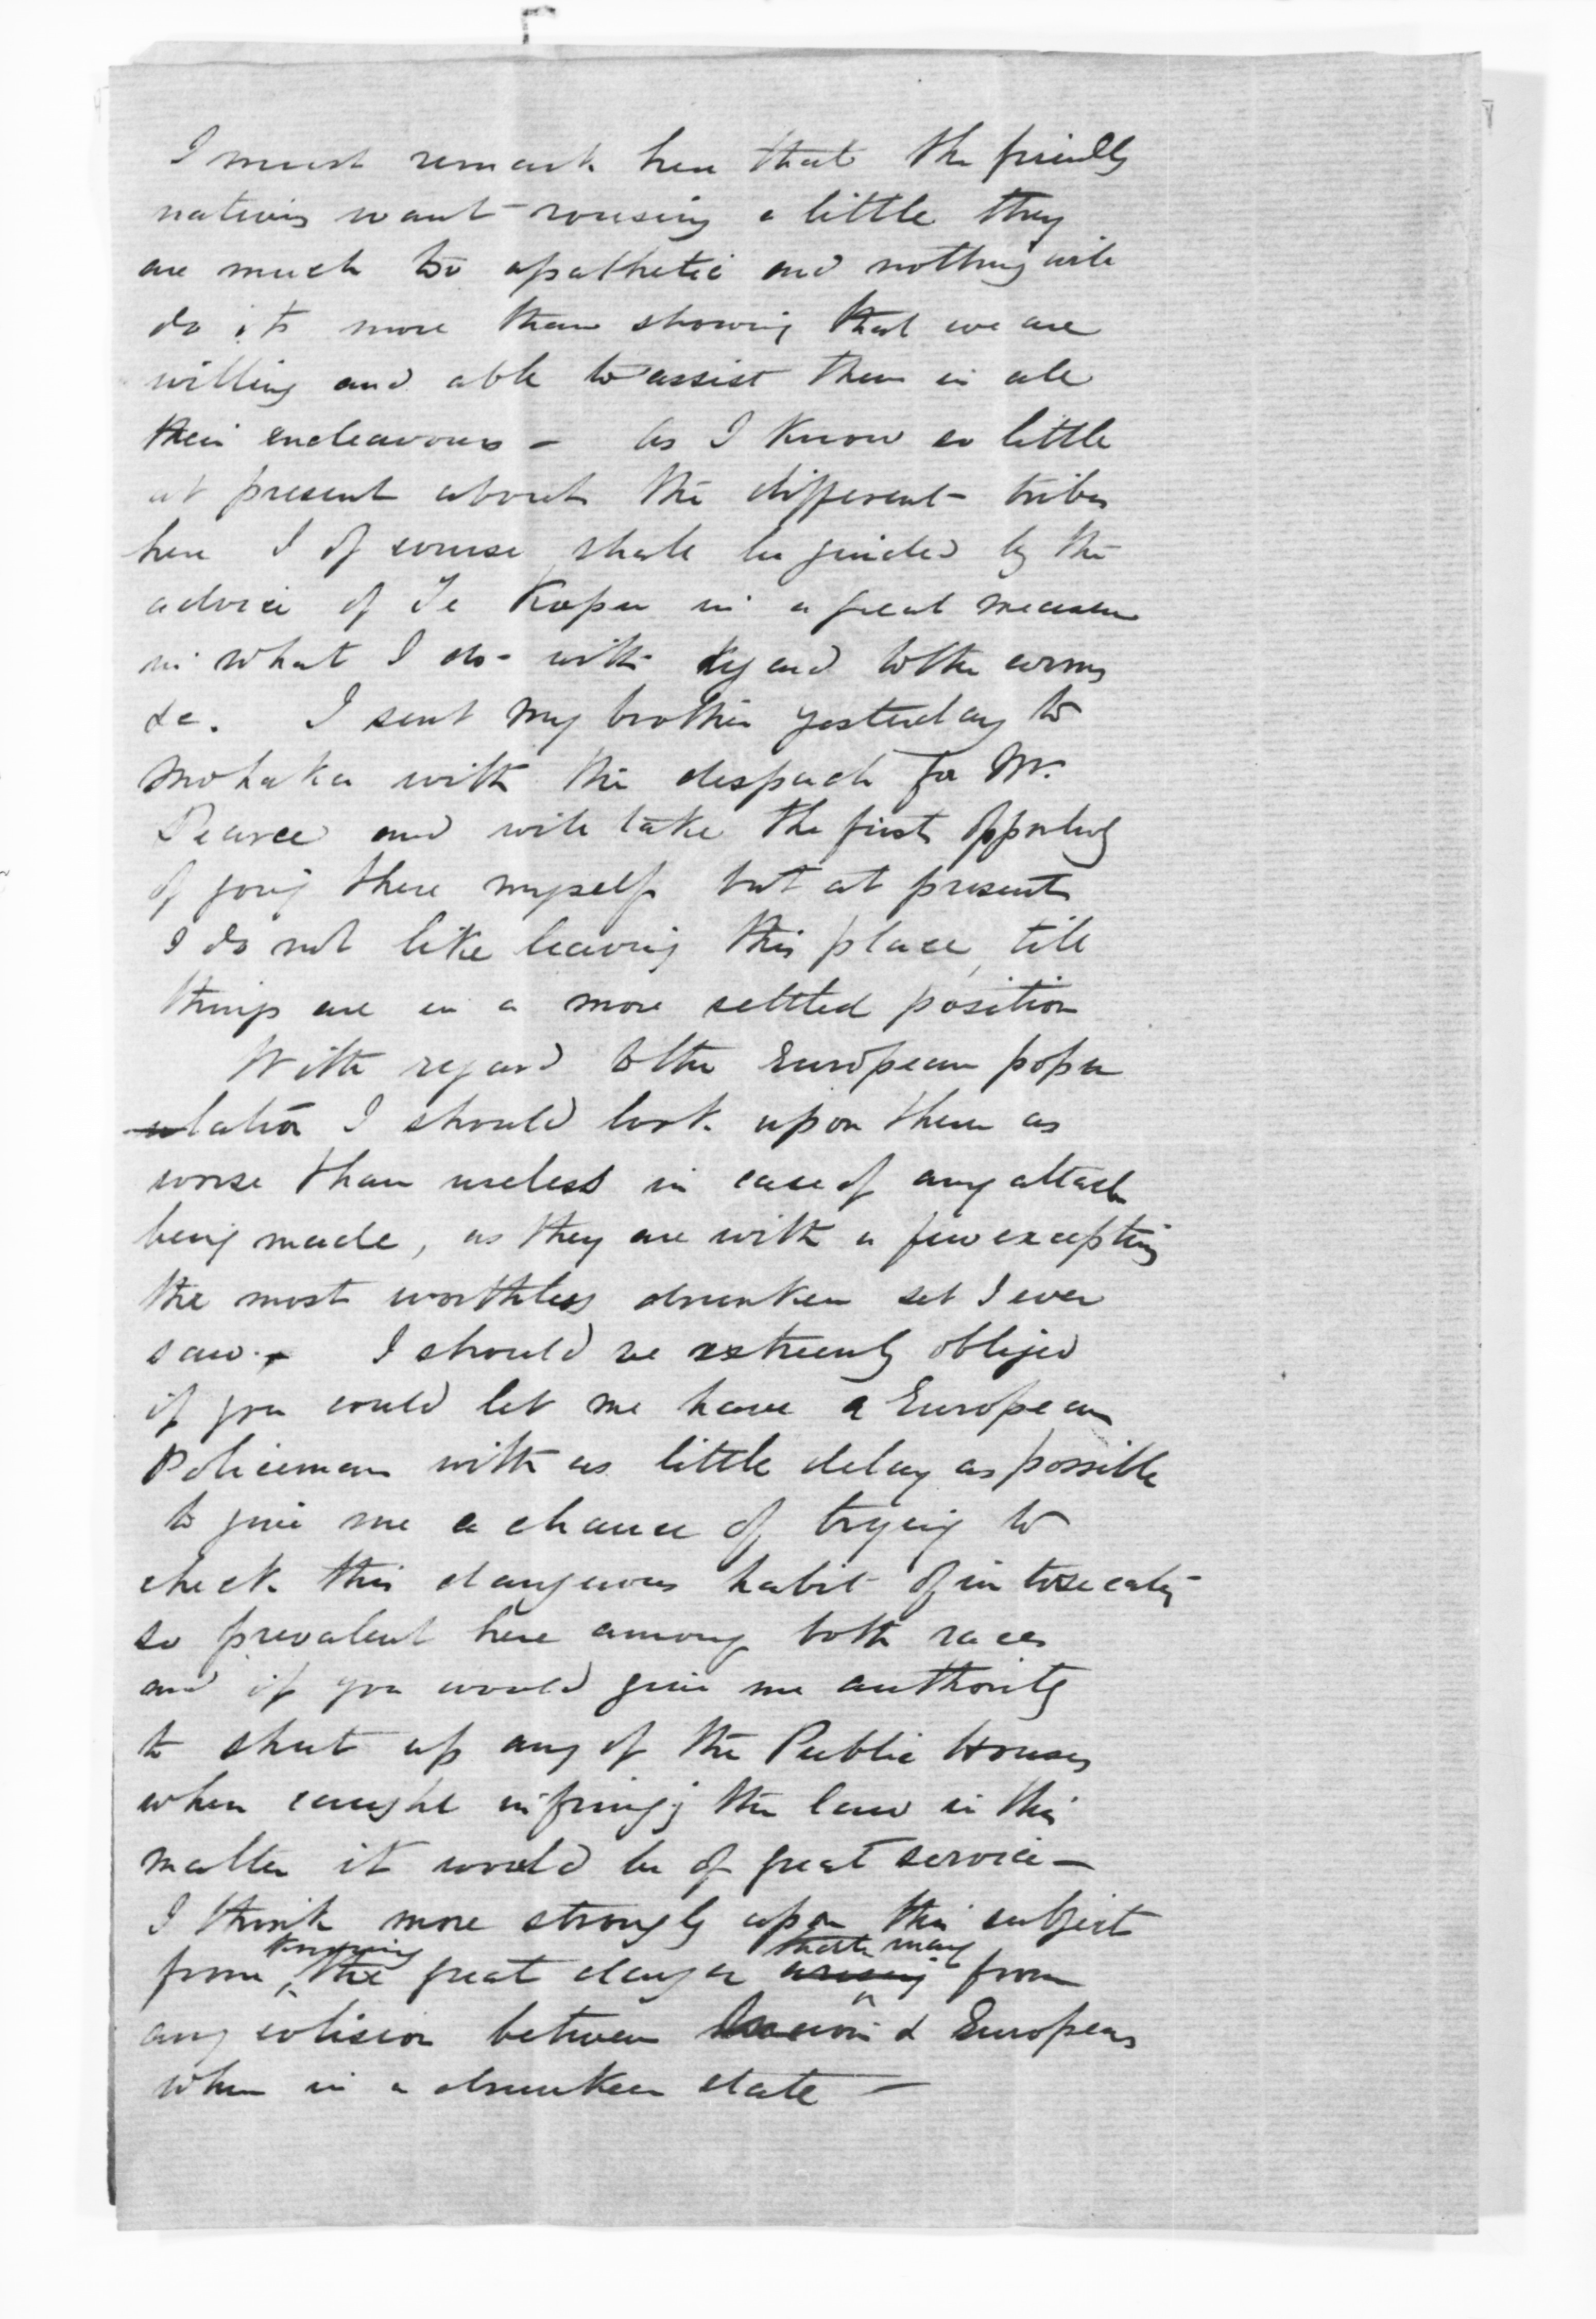 I must remark here that the friendly
natives want rousing a little they
are much too apathetic and nothing will
do it more than showing that we are
willing and able to assist them in all
their endeavours - As I know so little
at present about the different tribes
here I of course shall be guided by the
advice of Te Kopu in a great measure
in what I do - with regard to the arms
&c. I sent my brother yesterday to
Mohaka with the despach for Mr.
Pearce and will take the first opportunity
of going there myself but at present
I do not like leaving this place, till
things are in a more settled position
With regard to the European popu
lation I should look upon them as
worse than useless in case of any attack
being made, as they are with a few exceptions
the most worthless drunken set I ever
saw. - I should be extremely obliged
if you could let me have a European
Policeman with as little delay as possible
to give me a chance of trying to
check this dangerous habit of intoxicating
so prevalent here among both races
and if you would give me authority
to shut up any of the Public Houses
when caught infringing the law in this
matter it would be of great service -
I think more strongly upon this subject
knowing that may
from the great danger arising from
any colision between & Europeans
when in a drunken state -